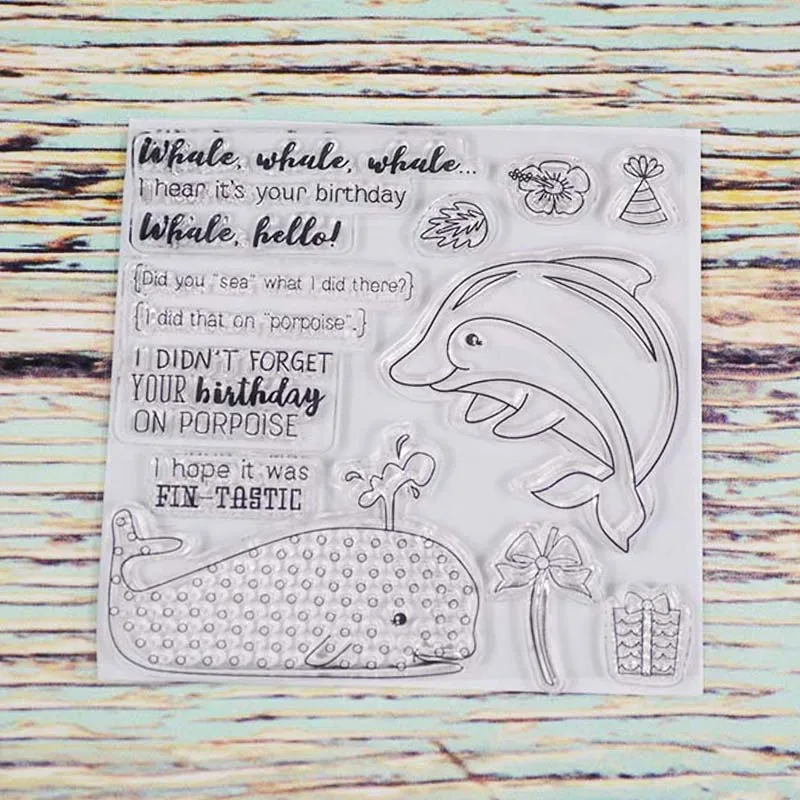 Whale, whale, whale...
I hear it's your birthday
Whale, hello!
{Did you "sea" what I did there?}
{I did that on "porpoise".}
I DIDN'T FORGET
YOUR birthday
ON PORPOISE
I hope it was
FIN-TASTIC